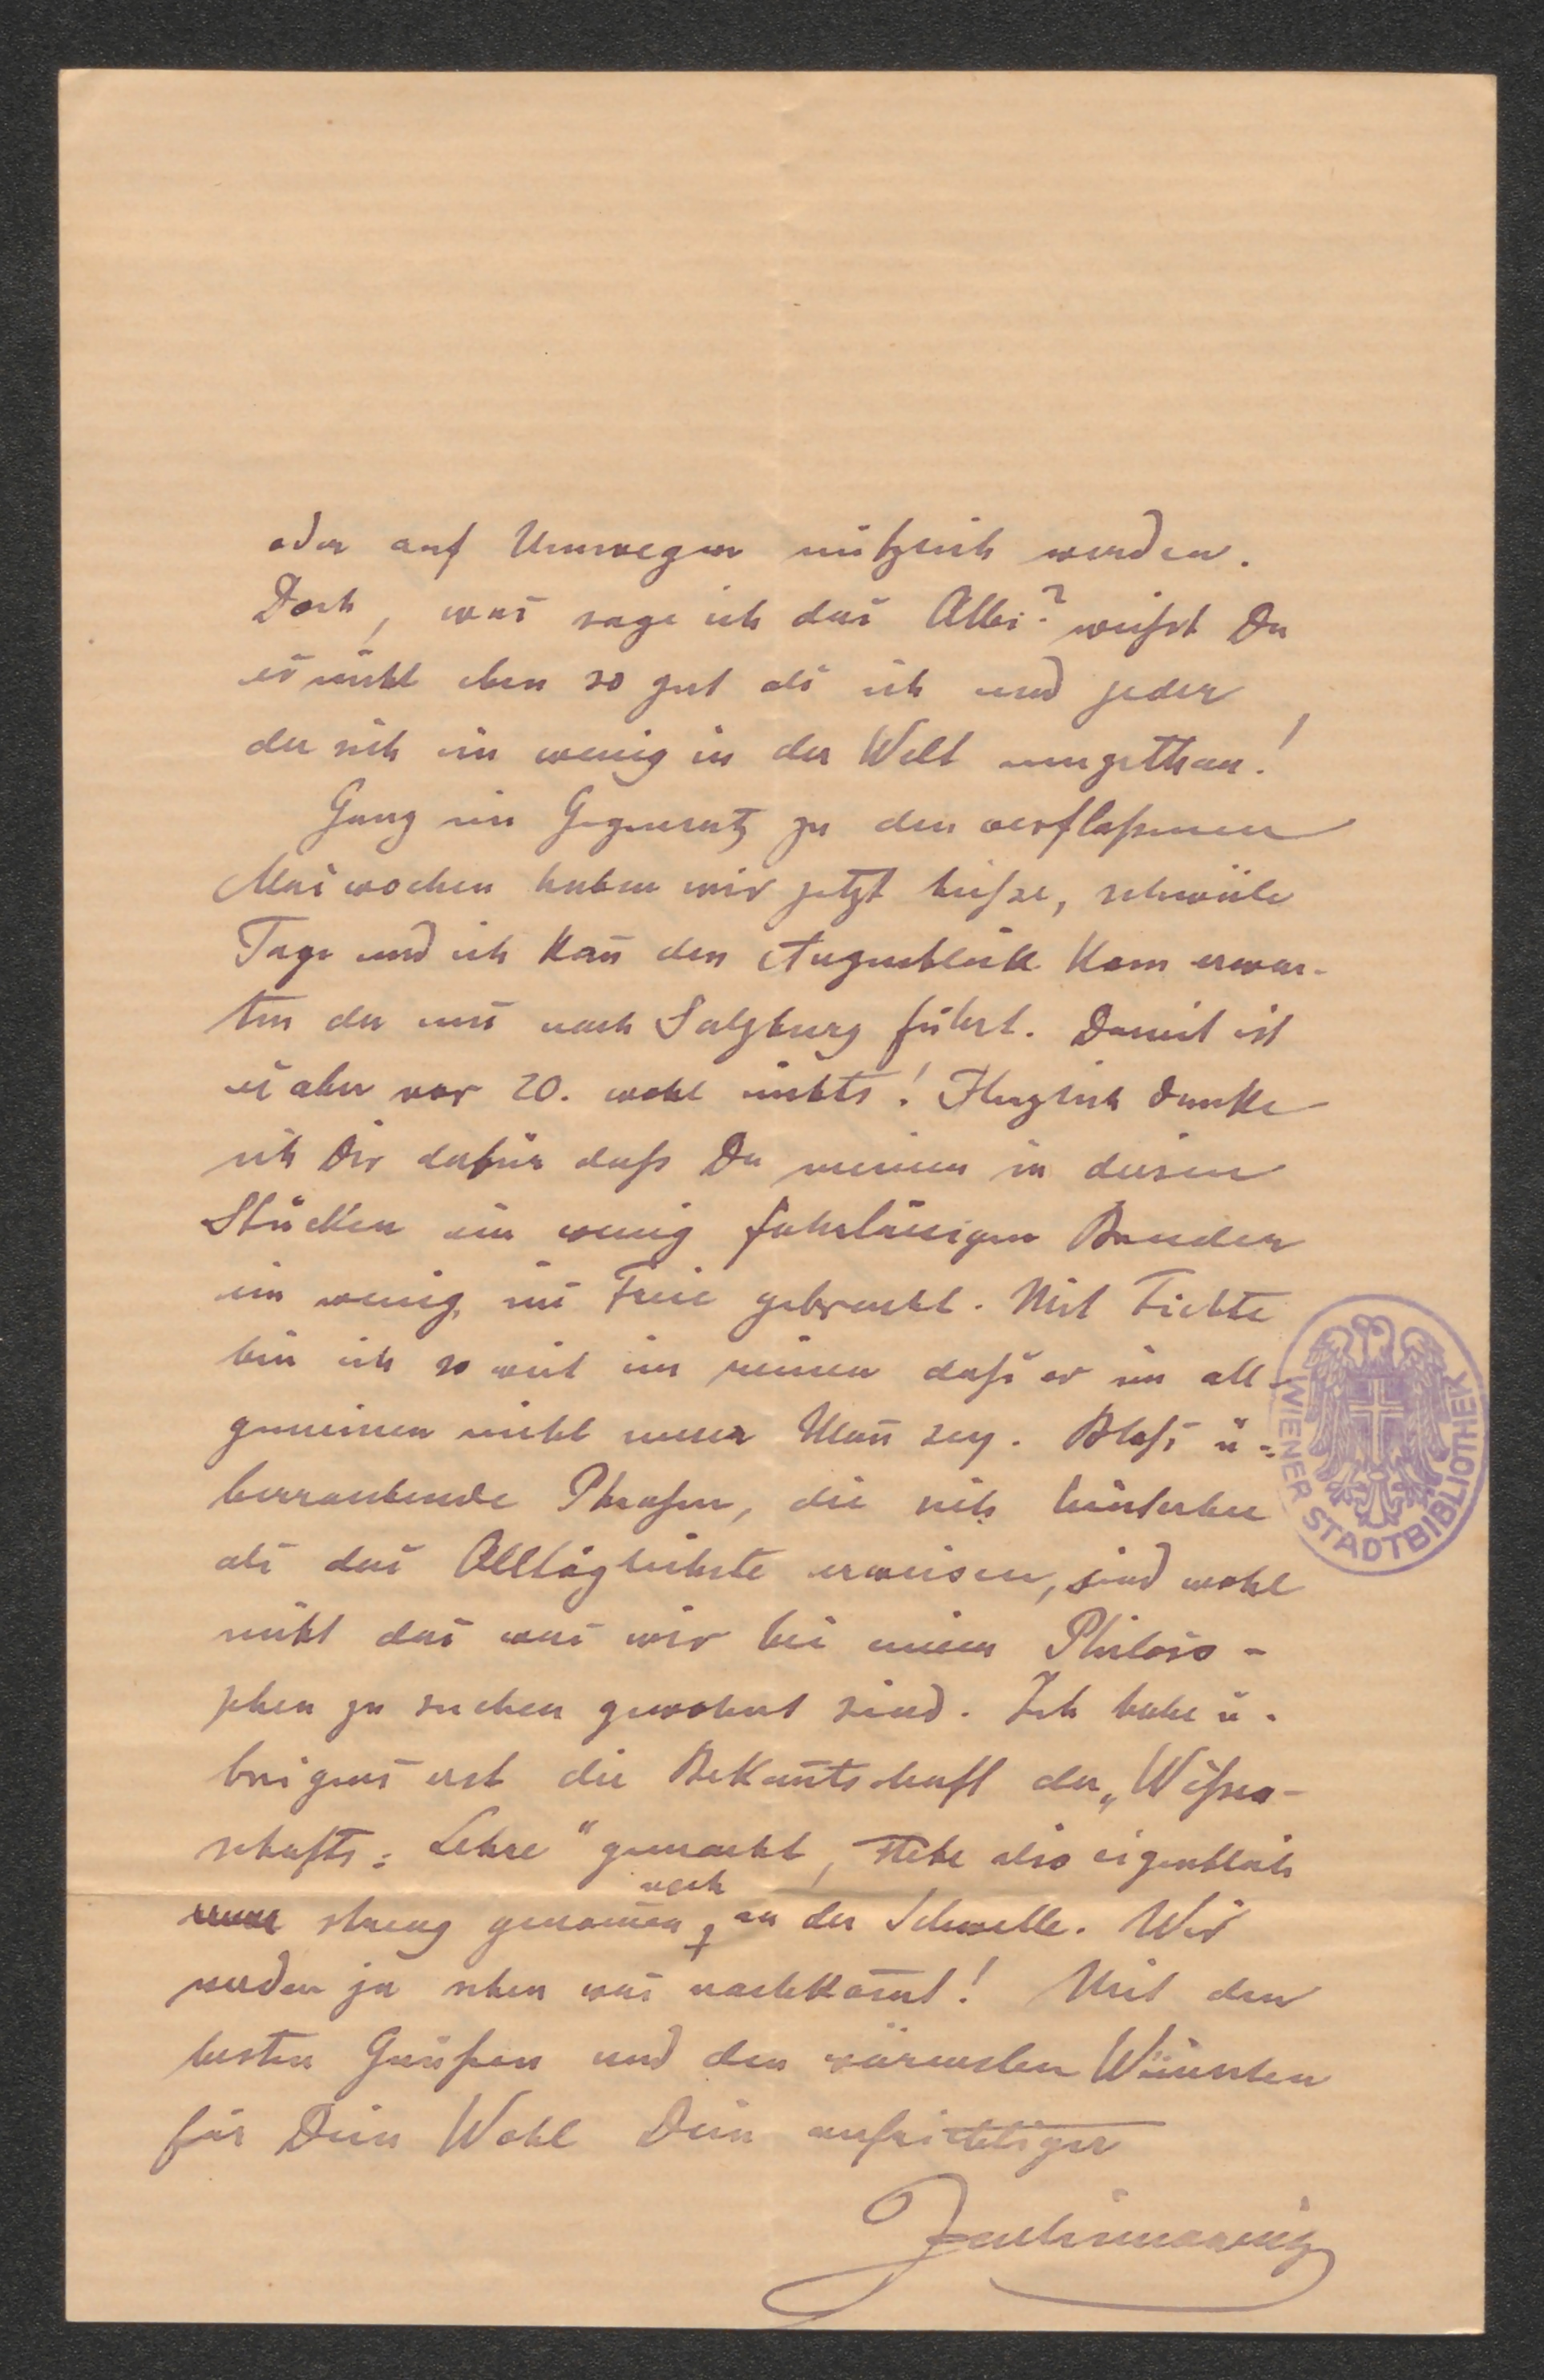 oder auf Umwegen nützlich werden.
Doch, was sage ich das Alles? weißt Du
es nicht eben so gut als ich und jeder
der sich ein wenig in der Welt umgethan!
Ganz im Gegensatz zu den verfloßenen
Maiwochen haben wir jetzt heiße, schwüle
Tage und ich kan̄ den Augenblick kam erwar-
ten der uns nach Salzburg führt. Damit ist
es aber vor 20. wohl nichts! Herzlich danke
ich Dir dafür daß Du meinen in diesen
Stücken ein wenig fahrlässigen Bruder
ein wenig ins Freie gebracht. Mit Fichte
bin ich so weit im reinen daß er im all-
gemeinen nicht unser Man̄ sey. Bloß ü-
berraschende Phrasen, die sich hinterher
als das Alltäglichste erweisen, sind wohl
nicht das was wir bei einem Philoso-
phen zu suchen gewohnt sind. Ich habe ü-
brigens erst die Bekan̄tschaft der „Wißen-
schafts=Lehre" gemacht, stehe also eigentlich
streng genom̄en noch an der Schwelle. Wir
werden ja sehen was nachkom̄t! Mit den
besten Grüßen und den wärmsten Wünschen
für Dein Wohl Dein aufrichtiger
WIENER STADTBIBLIOTHEK